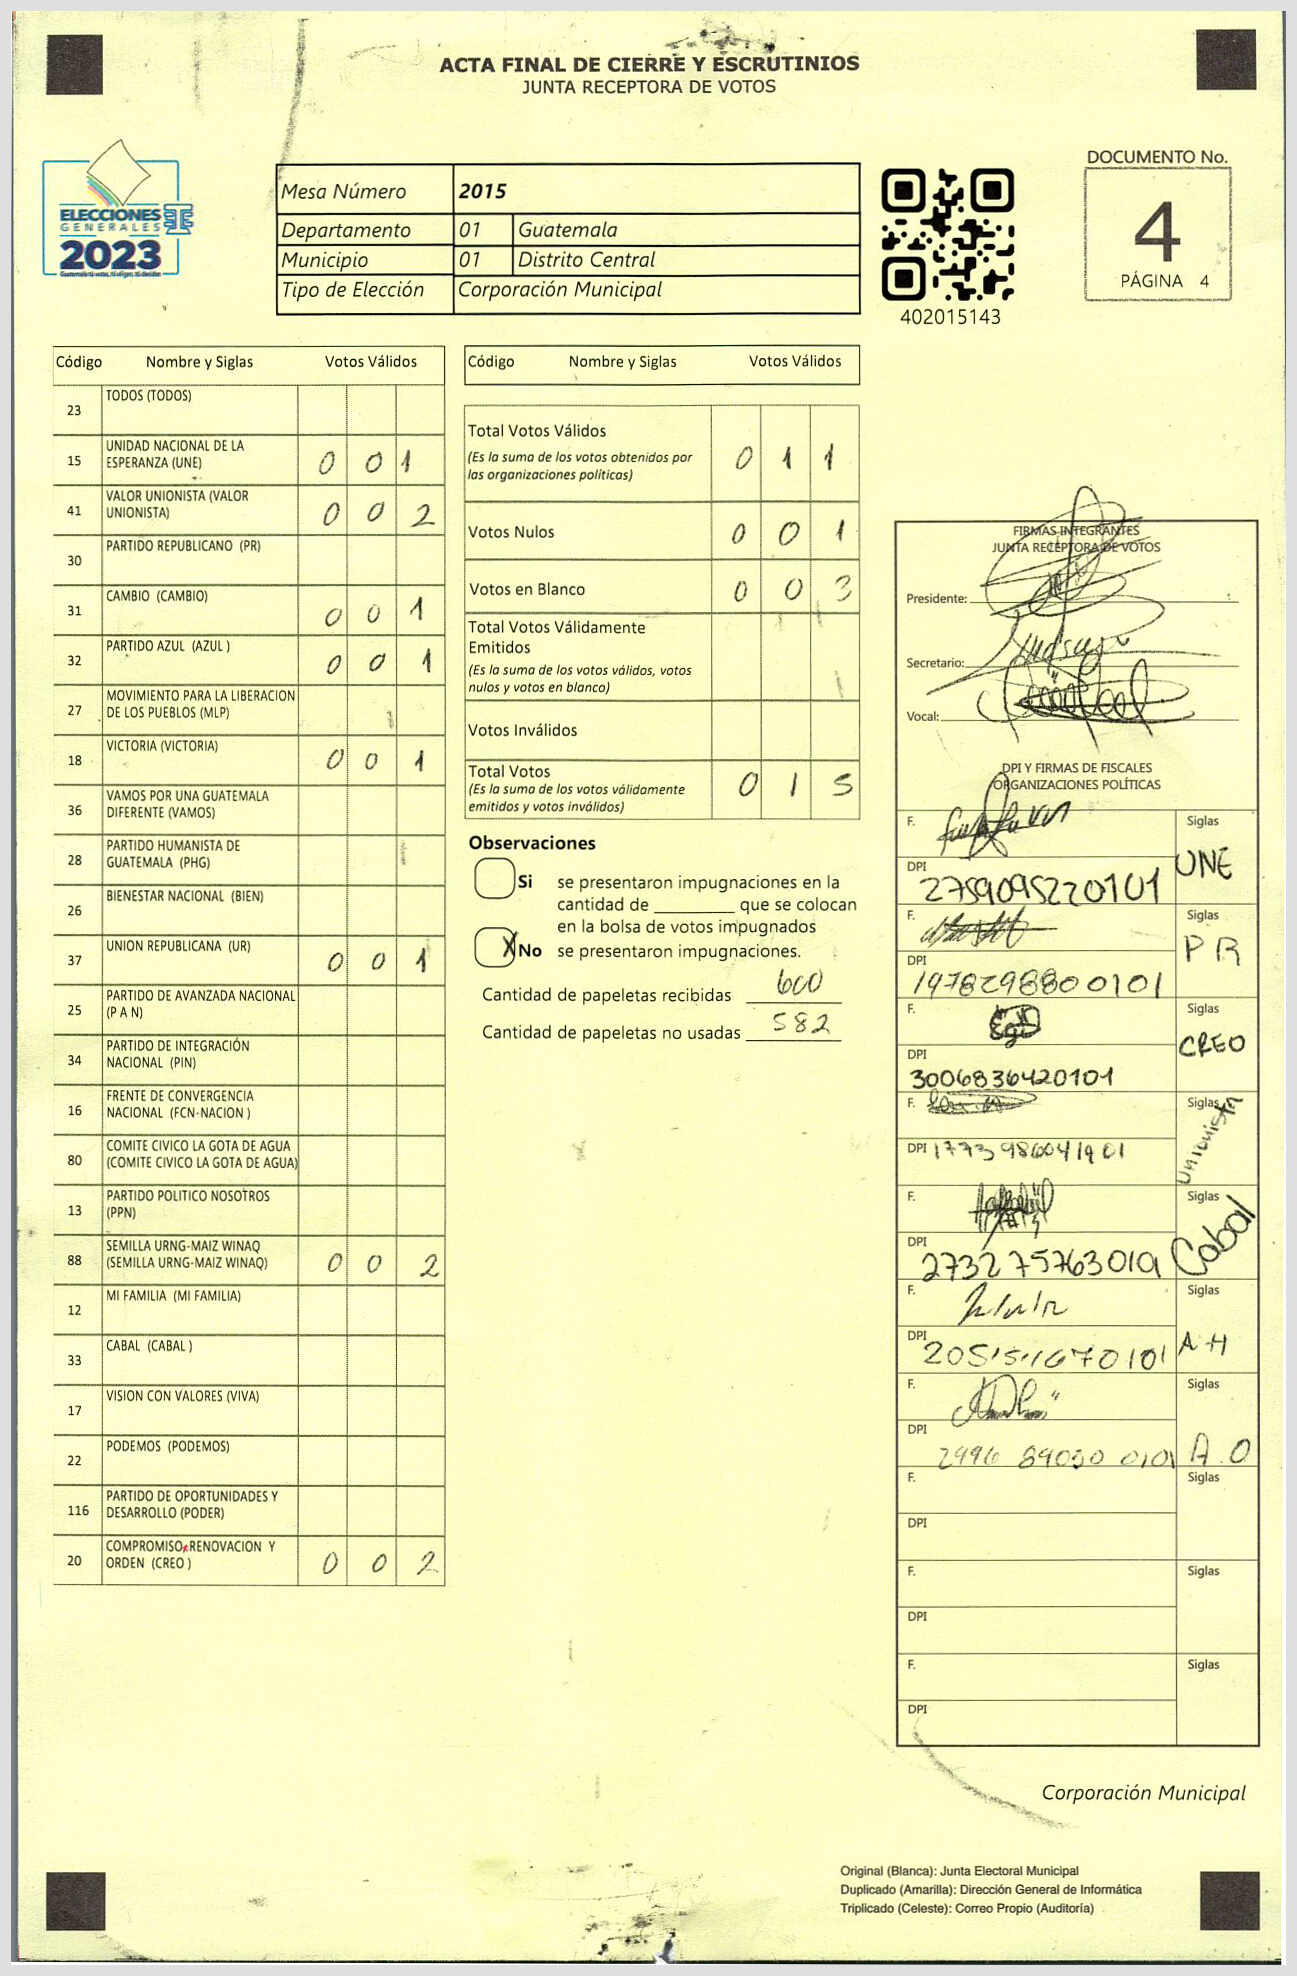 ACTA FINAL DE CIERRE Y ESCRUTINIOS
JUNTA RECEPTORA DE VOTOS
ELECCIONES
GENERALES
2023
Mesa Número 2015
Departamento 01 Guatemala
Municipio 01 Distrito Central
Tipo de Elección Corporación Municipal
402015143
DOCUMENTO No.
4
PÁGINA 4
Código Nombre y Siglas Votos Válidos
23 TODOS (TODOS)
15 UNIDAD NACIONAL DE LA
ESPERANZA (UNE) 0 0 1
41 VALOR UNIONISTA (VALOR
UNIONISTA) 0 0 2
30 PARTIDO REPUBLICANO (PR)
31 CAMBIO (CAMBIO) 0 0 1
32 PARTIDO AZUL (AZUL ) 0 0 1
27 MOVIMIENTO PARA LA LIBERACION
DE LOS PUEBLOS (MLP)
18 VICTORIA (VICTORIA) 0 0 1
36 VAMOS POR UNA GUATEMALA
DIFERENTE (VAMOS)
28 PARTIDO HUMANISTA DE
GUATEMALA (PHG)
26 BIENESTAR NACIONAL (BIEN)
37 UNION REPUBLICANA (UR) 0 0 1
25 PARTIDO DE AVANZADA NACIONAL
(P A N)
34 PARTIDO DE INTEGRACIÓN
NACIONAL (PIN)
16 FRENTE DE CONVERGENCIA
NACIONAL (FCN-NACION )
80 COMITE CIVICO LA GOTA DE AGUA
(COMITE CIVICO LA GOTA DE AGUA)
13 PARTIDO POLITICO NOSOTROS
(PPN)
88 SEMILLA URNG-MAIZ WINAQ
(SEMILLA URNG-MAIZ WINAQ) 0 0 2
12 MI FAMILIA (MI FAMILIA)
33 CABAL (CABAL )
17 VISION CON VALORES (VIVA)
22 PODEMOS (PODEMOS)
116 PARTIDO DE OPORTUNIDADES Y
DESARROLLO (PODER)
20 COMPROMISO, RENOVACION Y
ORDEN (CREO ) 0 0 2
Código Nombre y Siglas Votos Válidos
Total Votos Válidos
(Es la suma de los votos obtenidos por
las organizaciones políticas) 0 1 1
Votos Nulos 0 0 1
Votos en Blanco 0 0 3
Total Votos Válidamente
Emitidos
(Es la suma de los votos válidos, votos
nulos y votos en blanco)
Votos Inválidos
Total Votos
(Es la suma de los votos válidamente
emitidos y votos inválidos) 0 1 5
Observaciones
Si se presentaron impugnaciones en la
cantidad de ________ que se colocan
en la bolsa de votos impugnados
X No se presentaron impugnaciones.
Cantidad de papeletas recibidas 600
Cantidad de papeletas no usadas 582
FIRMAS INTEGRANTES
JUNTA RECEPTORA DE VOTOS
Presidente:
Secretario:
Vocal:
DPI Y FIRMAS DE FISCALES
ORGANIZACIONES POLÍTICAS
F. Siglas
DPI 2759095220101 UNE
F. Siglas
DPI 1978298800101 PR
F. Siglas
DPI 3006836420101 CREO
F. Siglas
DPI Unionista
F. Siglas
DPI Cabal
F. Siglas
DPI A H
F. Siglas
DPI A.O
F. Siglas
DPI
F. Siglas
DPI
F. Siglas
DPI
Corporación Municipal
Original (Blanca): Junta Electoral Municipal
Duplicado (Amarilla): Dirección General de Informática
Triplicado (Celeste): Correo Propio (Auditoría)